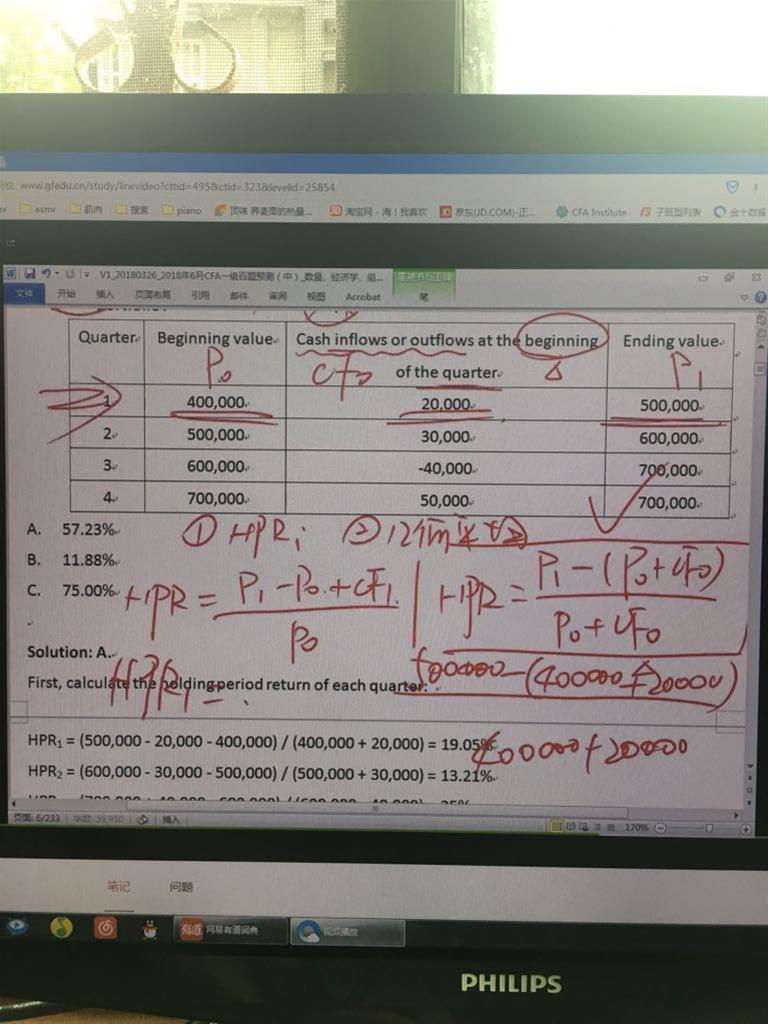 www.gfedu.cn/study/linevideo?cttid=495&ctid=323&levelid=25854
asmr 肌肉 搜索 piano 顶味 荞麦面的热量... 淘宝网 - 淘！我喜欢 京东(JD.COM)-正... CFA Institute 子班型列表 金十数据
V1_20180326_2018年6月CFA一级百题预测（中）_数量、经济学、组...
文件 开始 插入 页面布局 引用 邮件 审阅 视图 Acrobat 笔
Quarter Beginning value Cash inflows or outflows at the beginning of the quarter Ending value
P₀ CF₀ P₁
1 400,000 20,000 500,000
2 500,000 30,000 600,000
3 600,000 -40,000 700,000
4 700,000 50,000 700,000
A. 57.23%
① HPRi ②
B. 11.88%
C. 75.00%
HPR = P₁ - P₀ + CF₁ / P₀
HPR = P₁ - (P₀ + CF₀) / P₀ + CF₀
Solution: A.
500000 - (400000 + 20000)
HPR₁ =
First, calculate the holding period return of each quarter:
HPR₁ = (500,000 - 20,000 - 400,000) / (400,000 + 20,000) = 19.05%
400000 + 20000
HPR₂ = (600,000 - 30,000 - 500,000) / (500,000 + 30,000) = 13.21%
页面: 6/233 字数: 59,910 插入 170%
笔记 问题
有道 网易有道词典 视频播放
PHILIPS